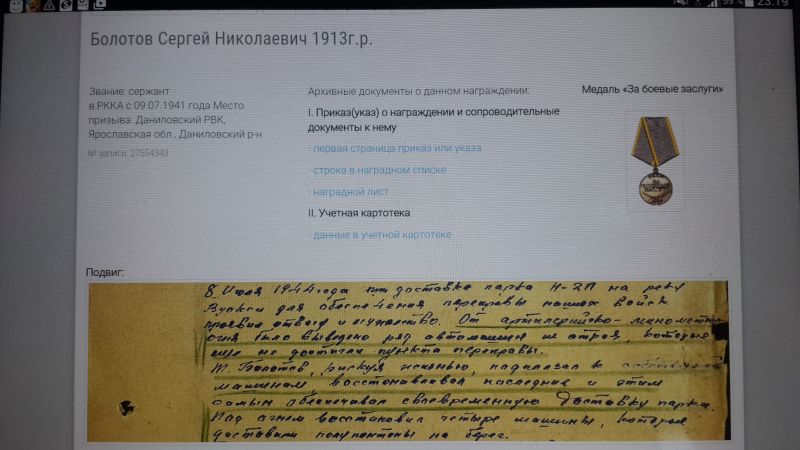 59% 23:19
Болотов Сергей Николаевич 1913г.р.
Звание: сержант
в РККА с 09.07.1941 года Место
призыва: Даниловский РВК,
Ярославская обл., Даниловский р-н
№ записи: 27554343
Архивные документы о данном награждении:
I. Приказ(указ) о награждении и сопроводительные
документы к нему
- первая страница приказ или указа
- строка в наградном списке
- наградной лист
II. Учетная картотека
- данные в учетной картотеке
Медаль «За боевые заслуги»
Подвиг:
8 июля 1944 года при доставке парка Н-2П на реку
Вуокси для обеспечения переправы наших войск
проявил отвагу и мужество. От артилерийско-минометного
огня было выведено ряд автомашин из строя, которые
еще не достигли пункта переправы.
Т. Болотов, рискуя жизнью, подползал к
машинам, восстанавливал последние и этим
самым обеспечивал своевременную доставку парка.
Под огнем восстановил четыре машины, которые
доставили полупонтоны на берег.